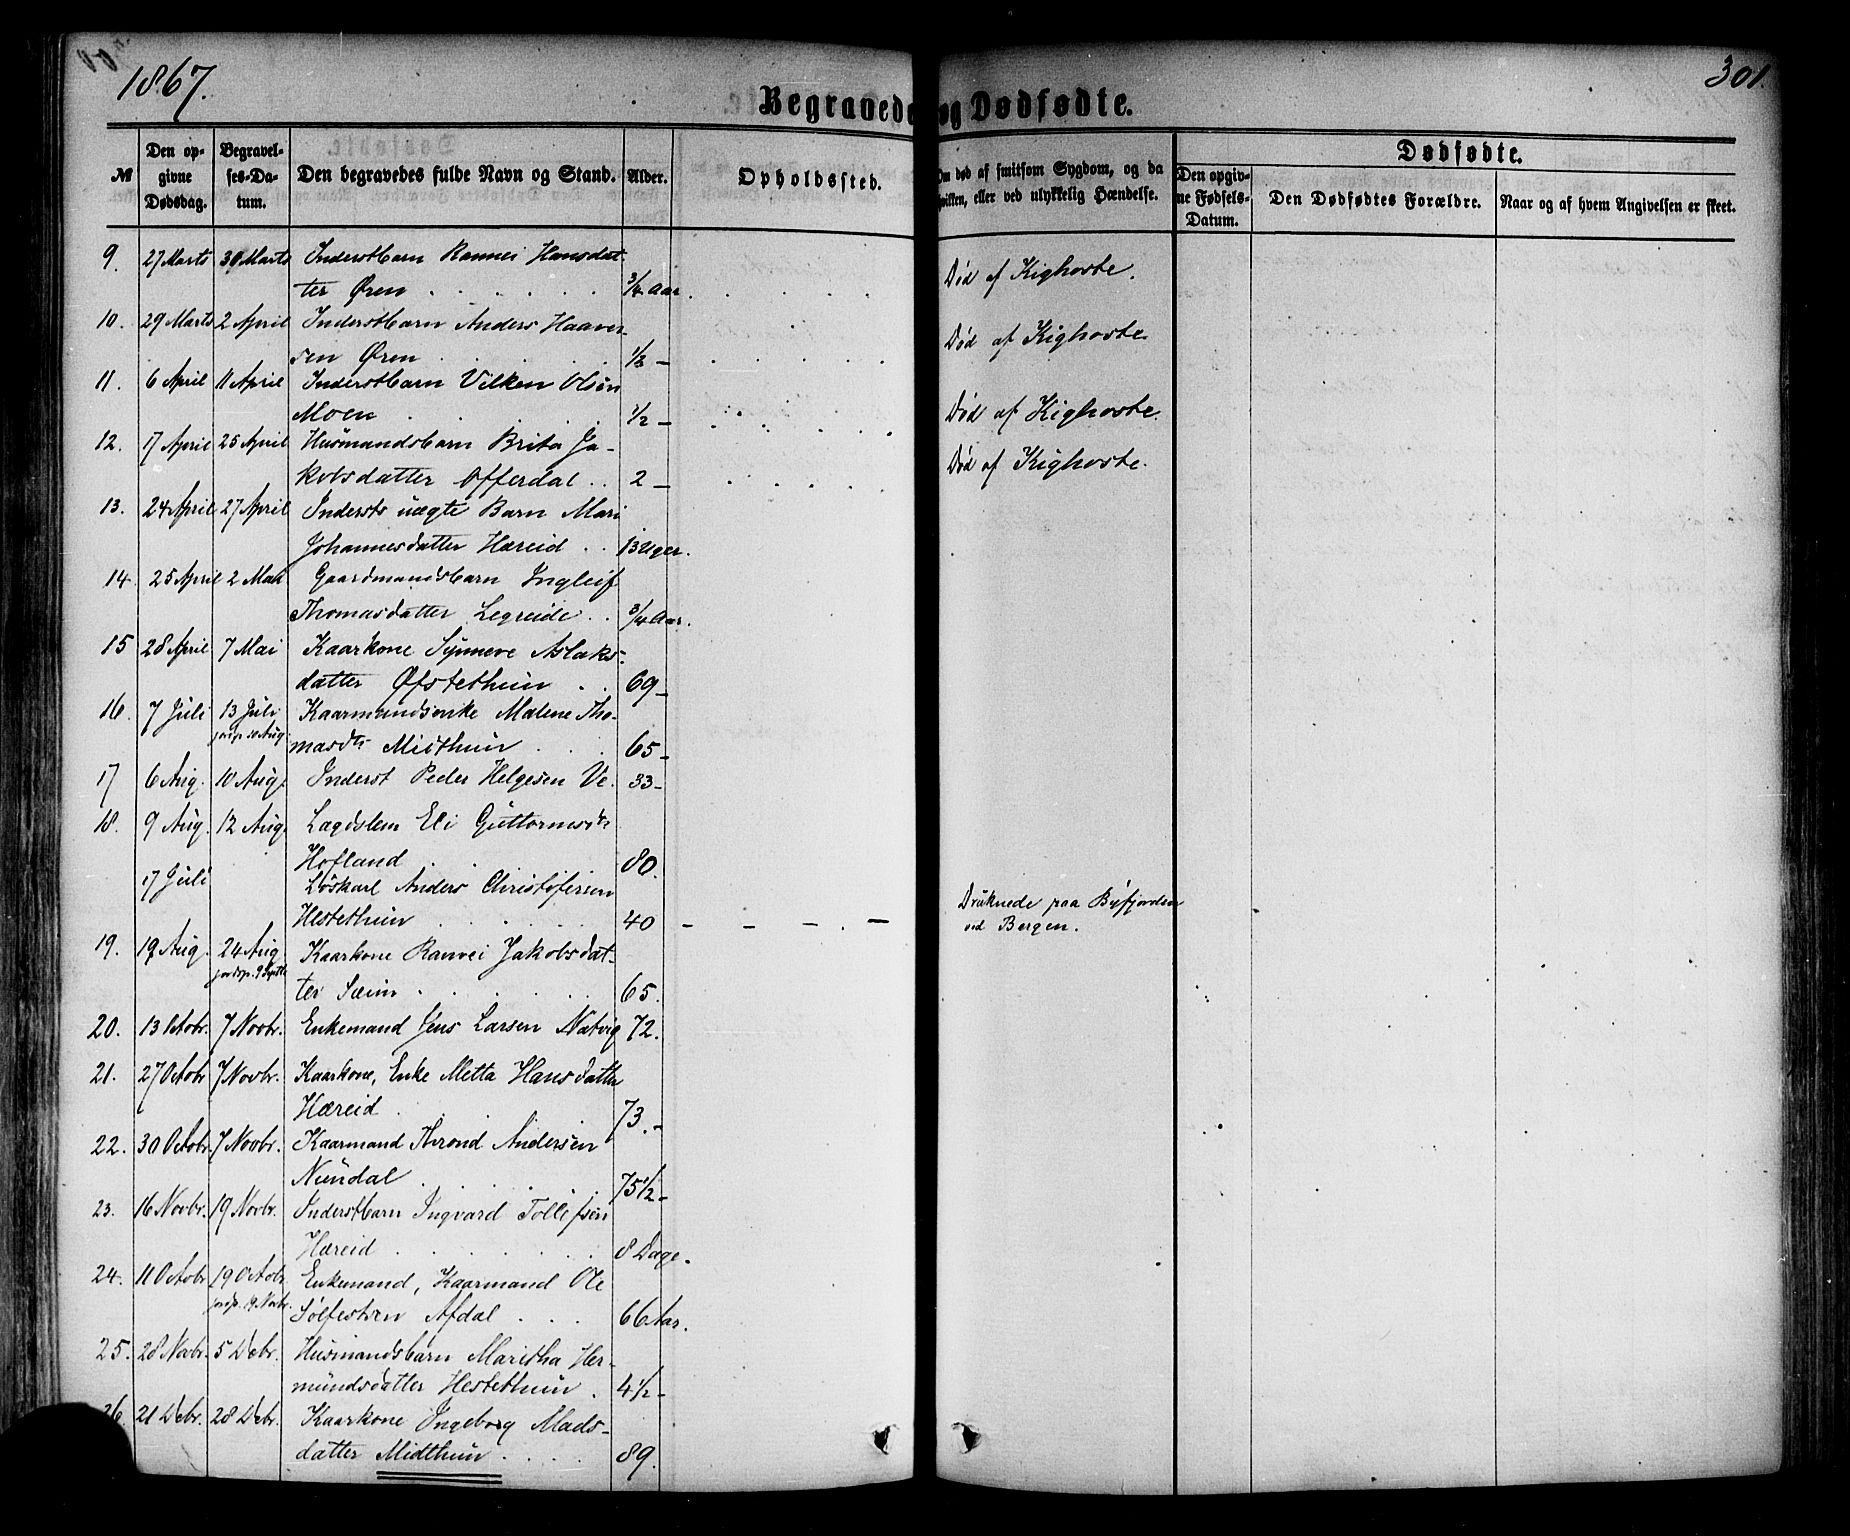 1867.
301.
Begravede og Dødfødte.
№
Den opgivne Dødsdag.
Begravelses-Datum.
Den begravedes fulde Navn og Stand.
Alder.
Opholdssted.
Om død af smitsom Sygdom, og da hvilken, eller ved ulykkelig Hændelse.
Dødfødte.
Den opgivne Fødsels-Datum.
Den Dødfødtes Forældre.
Naar og af hvem Angivelsen er skeet.
9. 27 Marts 30 Marts Inderstbarn Rannei Hansdat-
ter Øren 3/4 Aar. Død af Kighoste.
10. 29 Marts 2 April Inderstbarn Anders Haaver-
sen Øren - Død af Kighoste.
11. 6 April 11 April Inderstbarn Vilken Olsen
Moen 1/2 - Død af Kighoste.
12. 17 April 25 April Husmandsbarn Brita Ja-
kobsdatter Offerdal 2 - Død af Kighoste.
13. 24 April 27 April Indersts uægte Barn Mari
Johannesdatter Hæreid 13 Uger.
14. 25 April 2 Mai Gaardmandsbarn Ingleif
Thomasdatter Legreide 3/4 Aar.
15 28 April 7 Mai Kaarkone Synneve Aslaks-
datter Øfstethun 69 -
16. 7 Juli 13 Juli Kaarmandsenke Malene Tho-
jordp. 10 Aug
masdtr Midthun 65 -
17 6 Aug. 10 Aug. Inderst Peder Helgesen Ve. 33 -
18. 9 Aug. 12 Aug. Lægdslem Eli Guttormsdtr
Hofland 80.
17 Juli Løskarl Anders Christofersen
Hestethun 40 - - - . - Druknede paa Byfjorden
ved Bergen.
19. 19 Aug. 24 Aug Kaarkone Ranvei Jakobsdat-
jordsp. 9 Septbr
ter Sæim 65.
20. 13 Octobr. 7 Novbr. Enkemand Jens Larsen Natvig 72.
21. 27 Octobr 7 Novbr. Kaarkone, Enke Metta Hansdatter
Hæreid 73. -
22. 30 Octobr. 7 Novbr. Kaarmand Thrond Andersen
Nundal 75 1/2 -
23. 16 Novbr. 19 Novbr. Inderstbarn Ingvard Tollefsen
Hæreid 8 Dage.
24. 11 Octobr 19 Octobr. Enkemand, Kaarmand Ole
jordsp. 19 Novbr.
Sølfestsen Afdal 66 Aar.
25. 28 Novbr. 5 Debr. Husmandsbarn Maritha Her-
mundsdatter Hestethun 4 1/2 -
26. 21 Debr. 28 Debr. Kaarkone Ingeborg Mads-
datter Midthun 89.